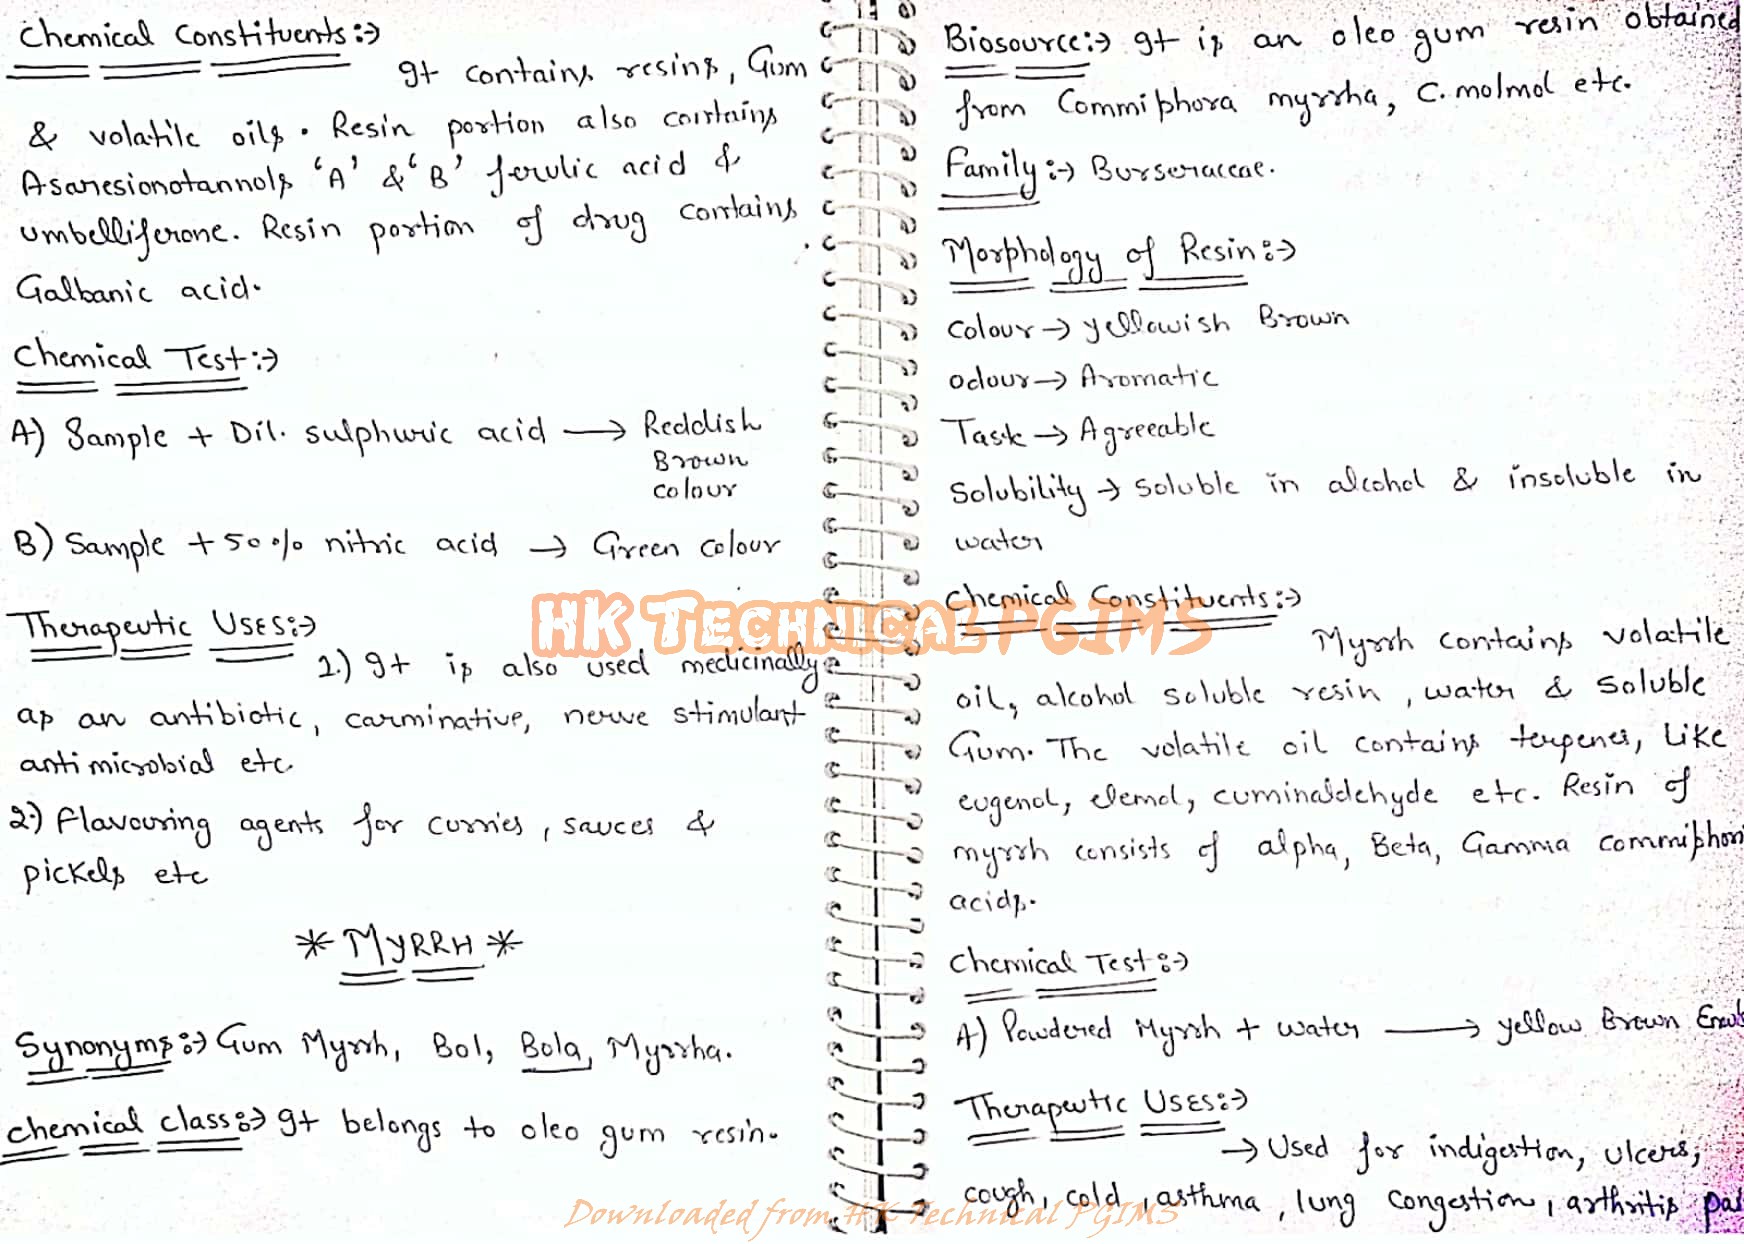 Chemical Constituents:->
It contains resins, Gum
& volatile oils. Resin portion also contains
Asaresionotannols 'A' & 'B' ferulic acid &
umbelliferone. Resin portion of drug contains
Galbanic acid.
Chemical Test:->
A) Sample + Dil. sulphuric acid → Reddish
Brown
colour
B) Sample + 50% nitric acid → Green colour
Therapeutic Uses:->
1.) It is also used medicinally
as an antibiotic, carminative, nerve stimulant
antimicrobial etc.
2.) Flavouring agents for curries, sauces &
pickels etc
* MYRRH *
Synonyms:-> Gum Myrrh, Bol, Bola, Myrrha.
Chemical class:-> It belongs to oleo gum resin.
Biosource:-> It is an oleo gum resin obtained
from Commiphora myrrha, C. molmol etc.
Family:-> Burseraceae.
Morphology of Resin:->
Colour → yellowish Brown
odour → Aromatic
Task → Agreeable
Solubility → Soluble in alcohol & insoluble in
water
Chemical Constituents:->
Myrrh contains volatile
oil, alcohol soluble resin, water & soluble
Gum. The volatile oil contains terpenes, like
eugenol, elemol, cuminaldehyde etc. Resin of
myrrh consists of alpha, Beta, Gamma commiphori
acids.
Chemical Test:->
A) Powdered Myrrh + water → yellow Brown
Therapeutic Uses:->
→ Used for indigestion, ulcers,
cough, cold, asthma, lung congestion, arthritis
HK Technical PGIMS
Downloaded from HK Technical PGIMS